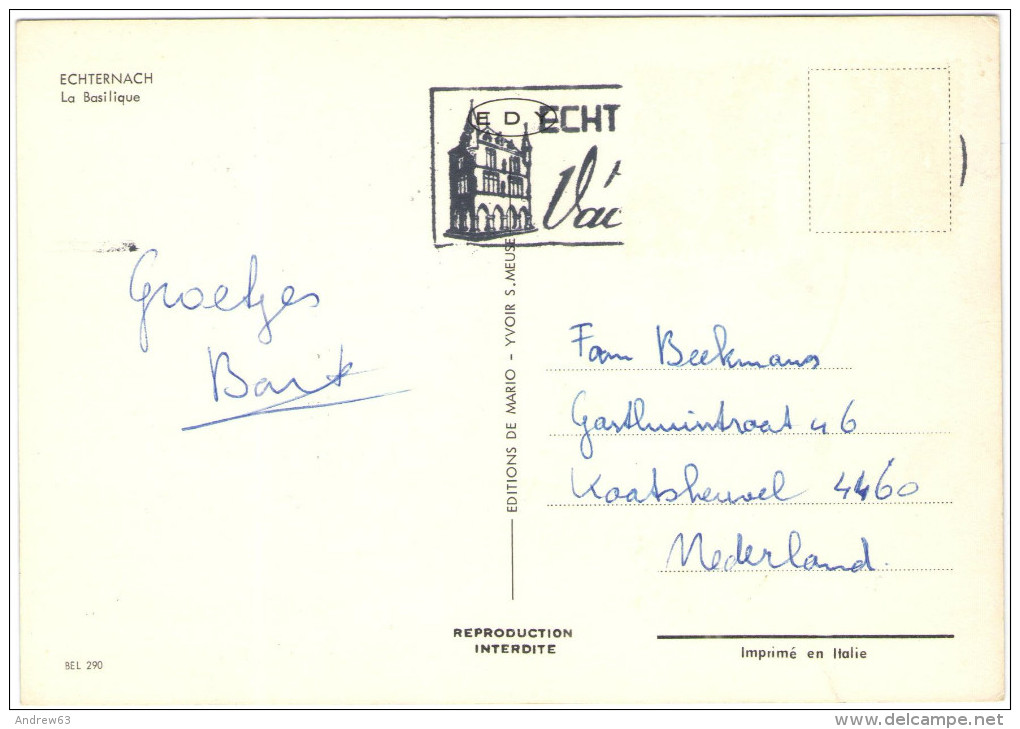 ECHTERNACH
La Basilique
EDY
ECHT
Vac
Groetjes
Bart
EDITIONS DE MARIO - YVOIR S. MEUSE
Fam Beekmans
Gasthuistraat 46
Kaatsheuvel 4460
Nederland.
REPRODUCTION
INTERDITE
Imprimé en Italie
BEL 290
Andrew63
www.delcampe.net